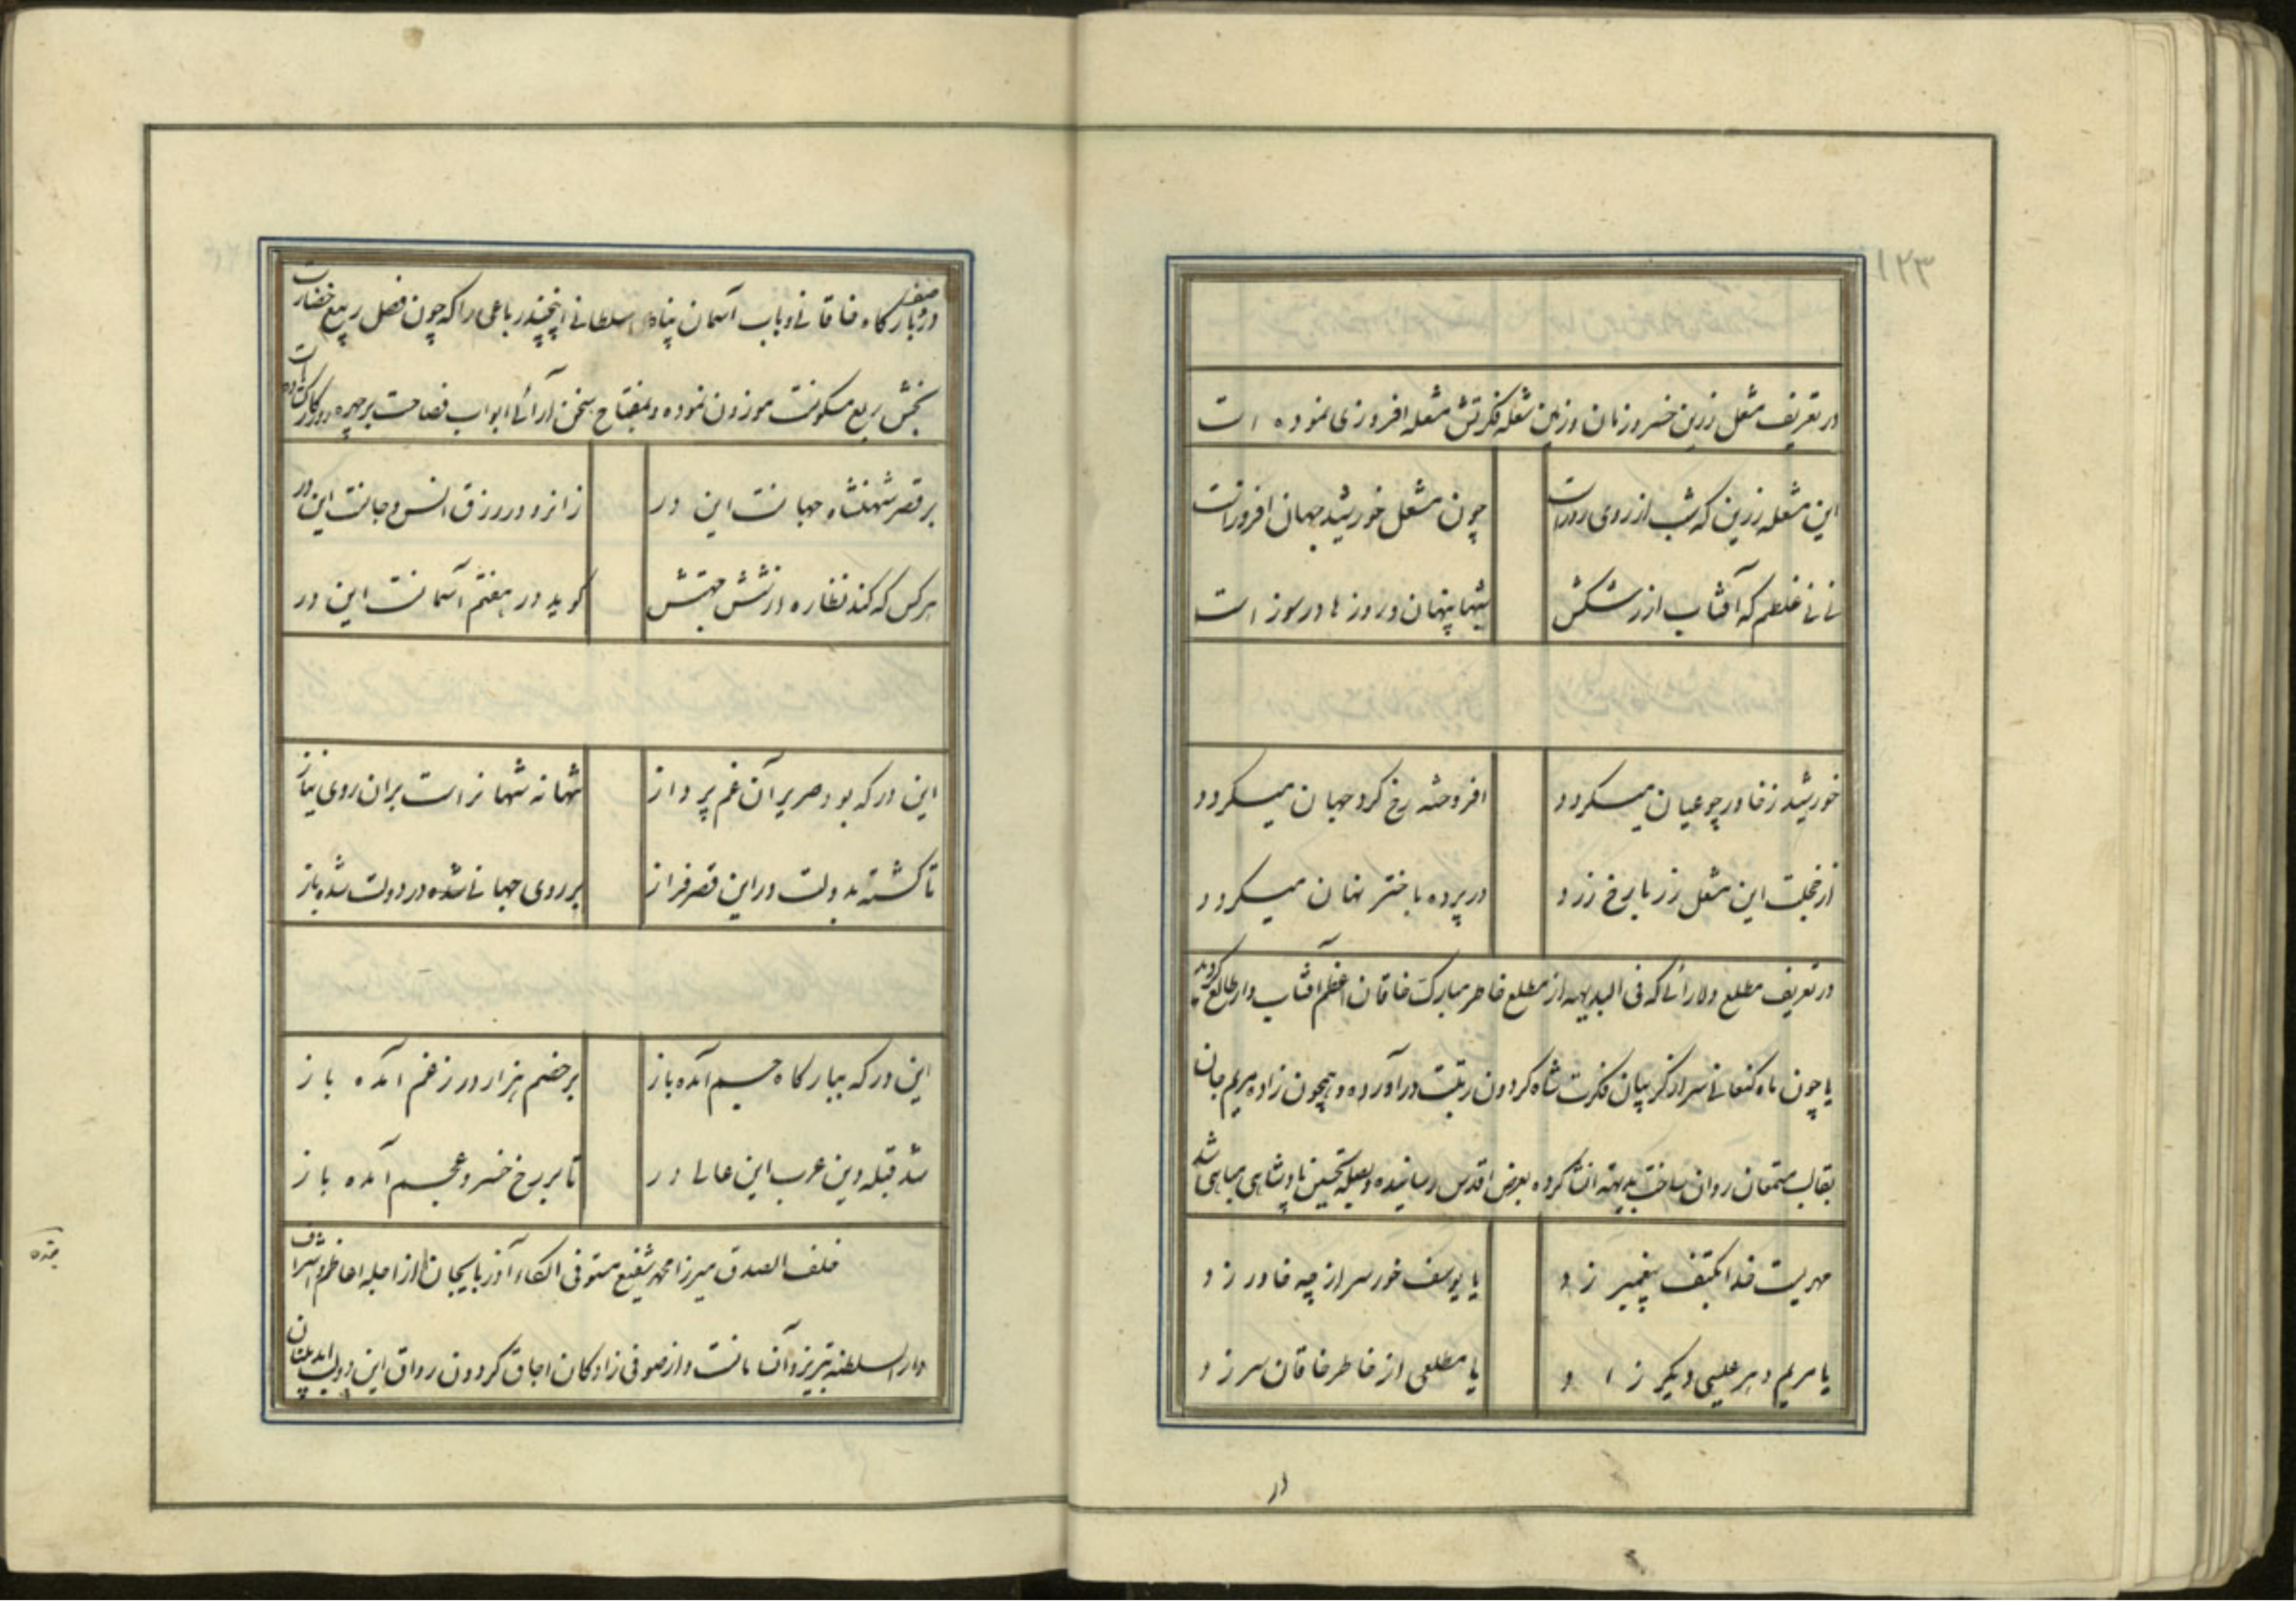 ۱۲۳
در تعریف مشعل زرین خسرو زمان و زمین شعله فکرتش مشعله افروزی نموده است
این مشعله زرین که شب از روی روز است چون مشعل خورشید جهان افروز است
نی نی غلطم که آفتاب از رشکش شبها پنهان و روزها در سوز است
خورشید ز خاور چو عیان میکردد افروخته رخ کرد جهان میکردد
از خجلت این مشعل زر با رخ زرد در پرده باختر نهان میکردد
در تعریف مطلع دلارائی که فی البدیهه از مطلع خاطر مبارک خاقان اعظم آفتاب وار طالع کردید
یا چون ماه کنعانی سر از کریبان فکرت شاه کردون رتبت در آورده و همچون زاده مریم جان
بقالب مستمعان روان ساخت بدیهة انشا کرده بعرض اقدس رسانیده و بصله تحسین پادشاهی مباهی شد
مهریست خدا بکتف پیغمبر زد یا یوسف خور سر از چه خاور زد
یا مریم دهر عیسی دیکر زاد یا مطلعی از خاطر خاقان سر زد
در
در وصف بارکاه خاقانی و باب آسمان پناه سلطانی اینچند رباعی را که چون فصل ربیع خضارت
بخش ربع مسکونست موزون نموده و بمفتاح سخن آرائی ابواب فصاحت بر چهره روزکار کشاده است
بر قصر شهنشاه جهانست این در زانرو در رزق انس و جانست این در
هر کس که کند نظاره از شش جهتش کوید در هفتم آسمانست این در
این در که بود صریر آن غم پرداز شهانه شهانراست بران روی نیاز
تا کشته بدولت در این قصر فراز بر روی جهانی شده در دولت شده باز
این در که ببارکاه جسم آمده باز بر خصم هزار در ز غم آمده باز
شد قبله دین عرب این عالی در تا بر رخ خسرو عجم آمده باز
خلف الصدق میرزا محمد شفیع مستوفی الکاء آذربایجان از اجله اعاظم و اشراف
دار السلطنه تبریز و آن سامانست و از صوفی زادکان اجاق کردون رواق این دولت ابد بنیان